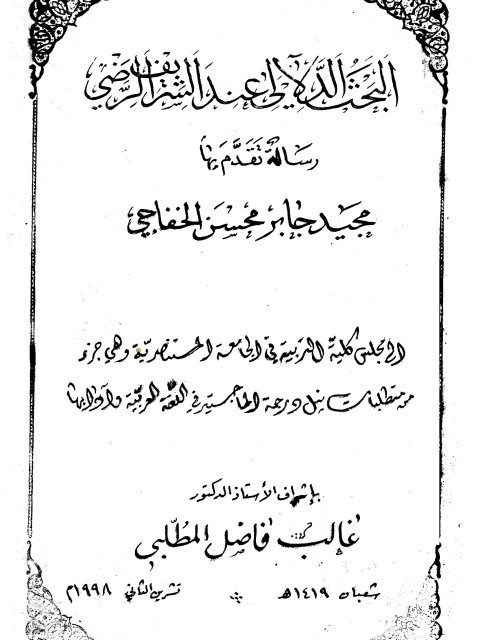 البَحثُ الدَّلاليّ عِندَ الشَّريفِ الرَّضي
رسالة تَقَدَّمَ بِها
مجيد جابر محسن الخفاجي
الى مجلس كلية التربية في الجامعة المستنصريّة وهي جزء
من متطلبات نيل درجة الماجستير في اللُّغة العربيّة وآدابها
بإشراف الأستاذ الدكتور
غالب فاضل المطّلبي
شعبان ١٤١٩هـ تشرين الثاني ١٩٩٨م